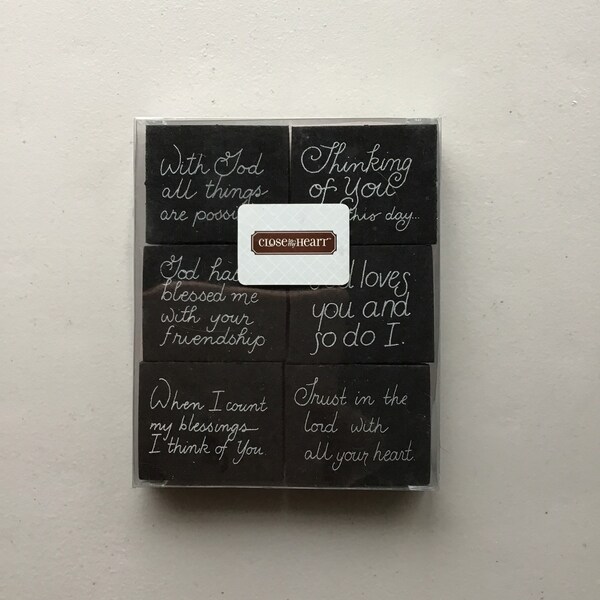 With God
all things
are
Thinking
of You
this day...
CLOSE TO MY HEART™
God has
blessed me
with your
friendship
loves
you and
so do I.
When I count
my blessings
I think of You
Trust in the
lord with
all your heart.